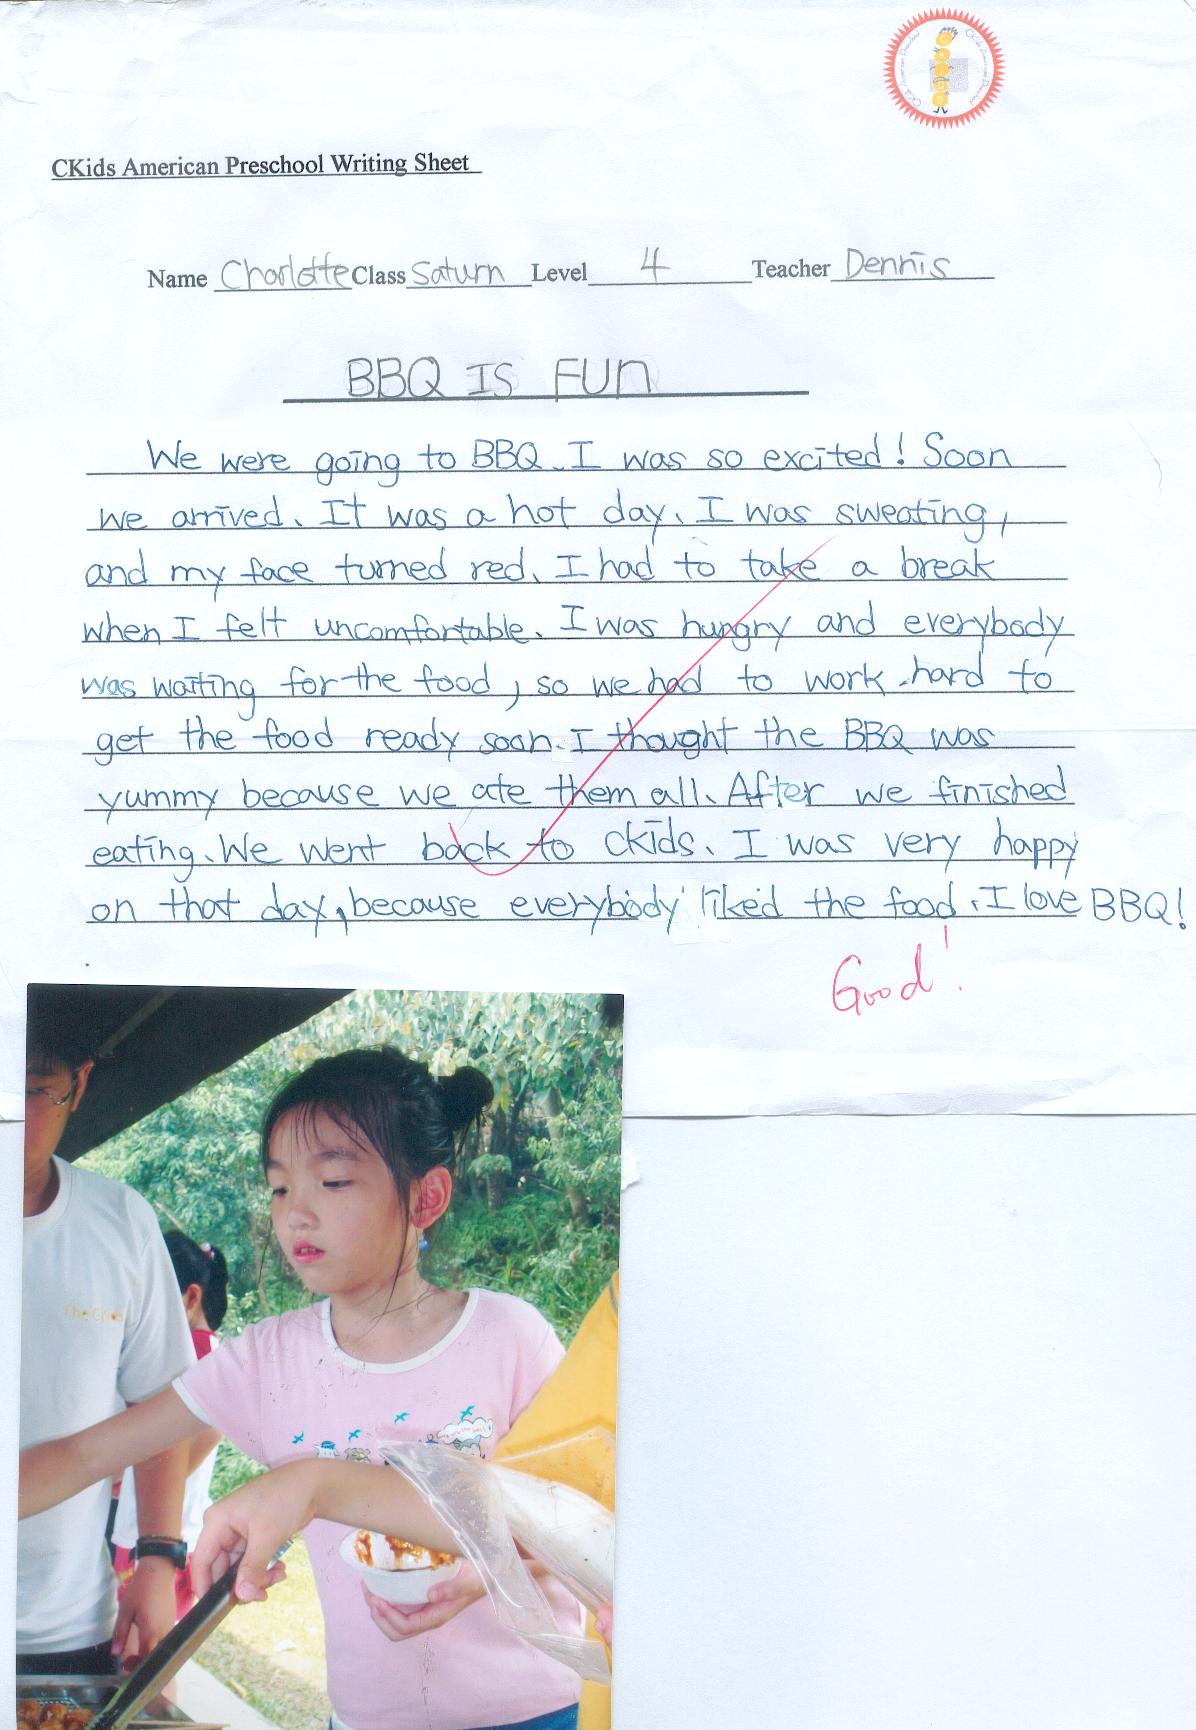 CKids American Preschool
CKids American Preschool
CKids American Preschool Writing Sheet
Name Charlotte Class Saturn Level 4 Teacher Dennis
BBQ IS FUN
We were going to BBQ. I was so excited! Soon
we arrived. It was a hot day. I was sweating,
and my face turned red. I had to take a break
when I felt uncomfortable. I was hungry and everybody
was waiting for the food, so we had to work hard to
get the food ready soon. I thought the BBQ was
yummy because we ate them all. After we finished
eating. We went back to Ckids. I was very happy
on that day, because everybody liked the food. I love BBQ!
Good!